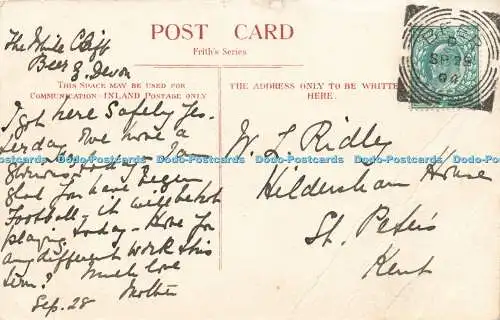 POST CARD
Frith's Series
THIS SPACE MAY BE USED FOR
COMMUNICATION INLAND POSTAGE ONLY
THE ADDRESS ONLY TO BE WRITTEN
HERE.
BEER
SP 28
The White Cliff
Beer
S. Devon
I got here safely yes-
terday. I've have a
glorious today - I am
glad you have begun
Football - it will be hot
playing today - Have you
any different work this
term? Much love
Mother
Sep. 28
W. L. Ridley
Hildersham House
St. Peter's
Kent
Dodo-Postcards Dodo-Postcards Dodo-Postcards Dodo-Postcards Dodo-Postcards Dodo-Postcards